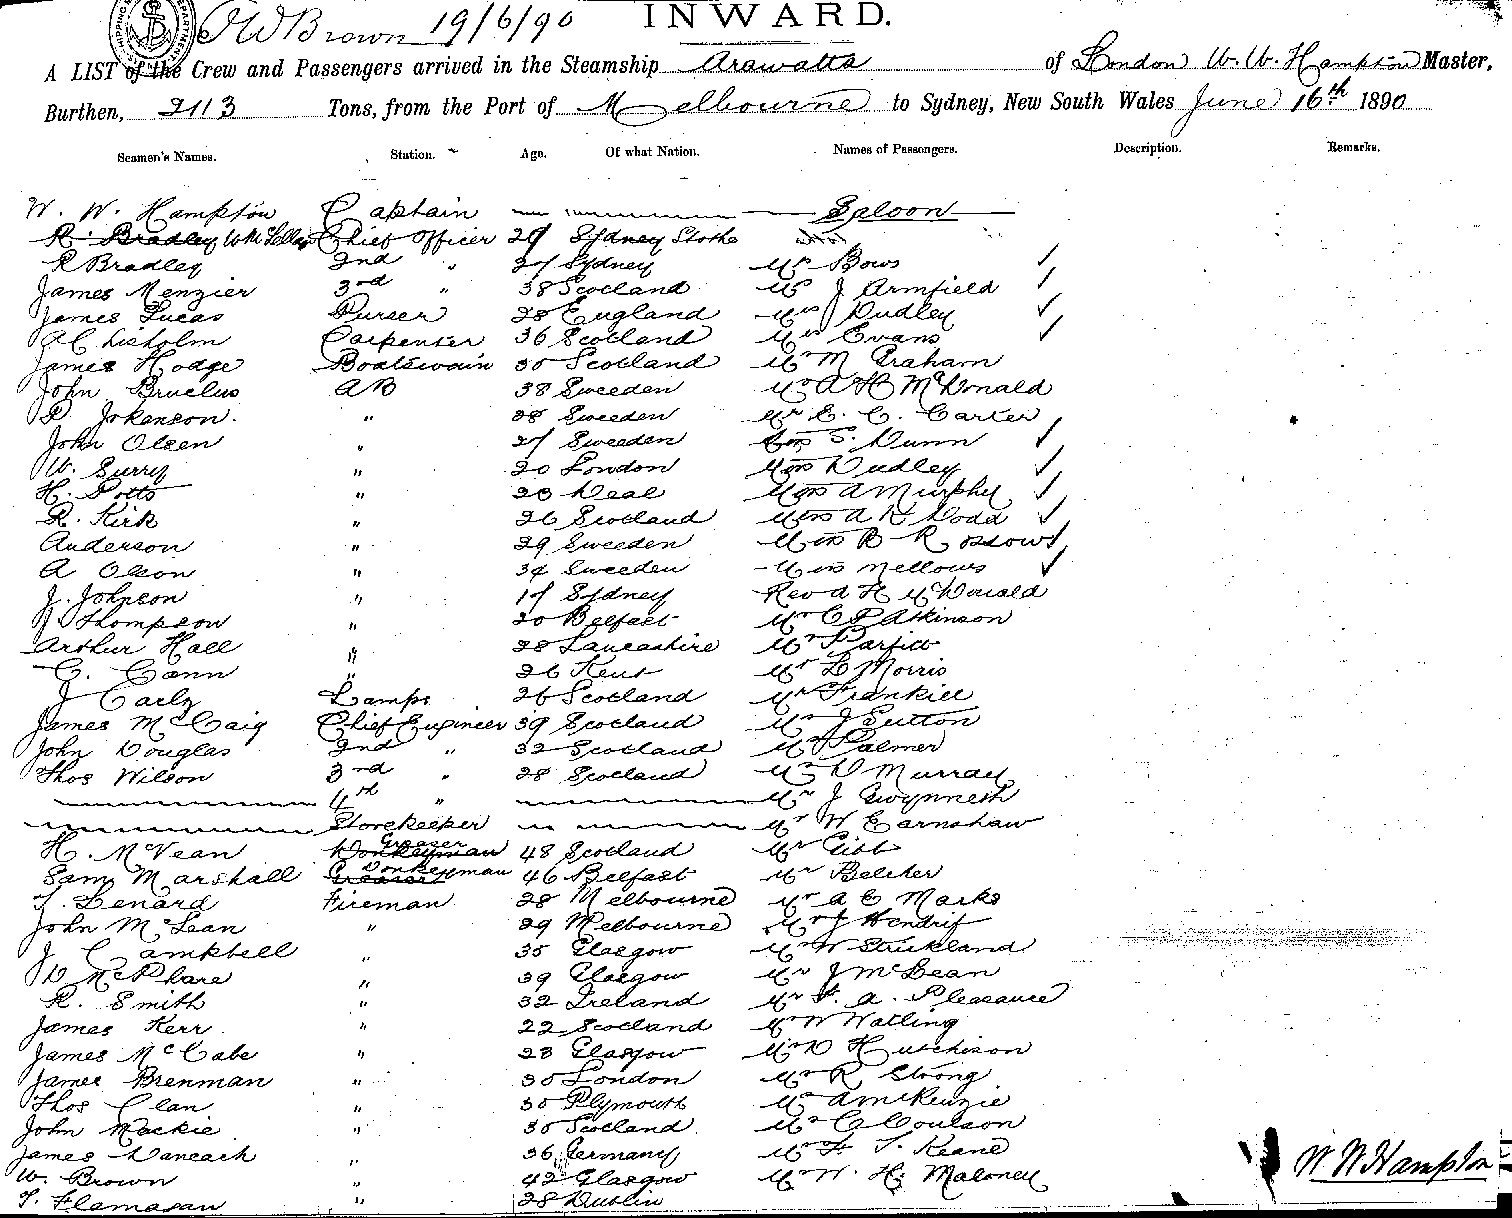 SHIPPING DEPARTMENT
W Brown 19/6/90 INWARD.
A LIST of the Crew and Passengers arrived in the Steamship Arawatta of London W. W. Hampton Master,
Burthen, 2113 Tons, from the Port of Melbourne to Sydney, New South Wales June 16th 1890
Seamen's Names. Station. Age. Of what Nation. Names of Passengers. Description. Remarks.
W. W. Hampton Captain Saloon
R. Bradley Chief Officer 29 Sydney
R Bradley 2nd " 27 Sydney Mr Bows
James Menzier 3rd " 38 Scotland Mr J Armfield
James Lucas Purser 28 England Mrs Dudley
A Chisholm Carpenter 36 Scotland Mrs Evans
James Hodge Boatswain 30 Scotland Mr M Graham
John Bruelus AB 38 Sweeden Mr A H McDonald
P. Johenson. " 28 Sweeden Mr E. C. Carter
John Olsen " 27 Sweeden S. Dunn
W. Surry " 20 London Miss Dudley
H. Potts " 23 Deal Miss A Murphy
R. Kirk " 26 Scotland Miss A K Dodd
Anderson " 29 Sweeden Miss B Rossow
A Olson " 34 Sweeden Miss Mellows
J. Johnson " 17 Sydney Revd H McDonald
Thompson " 20 Belfast Mr C P Atkinson
Arthur Hall " 28 Lancashire Mr Parfitt
C. Cann " 26 Kent Mr D Morris
J Carly Lamps 26 Scotland Mr Frankiel
James McCaig Chief Engineer 39 Scotland Mr J Sutton
John Douglas 2nd " 32 Scotland Mr Palmer
Thos Wilson 3rd " 28 Scotland Mr D Murray
4th " Mr J Gwynneth
Storekeeper Mr W Earnshaw
H. McVean Donkeyman Greaser 48 Scotland Mr Gibb
Sam Marshall Greaser Donkeyman 46 Belfast Mr Belcher
T. Lenard Fireman 28 Melbourne Mr A E Marks
John McLean " 29 Melbourne Mr J Hendrif
J Campbell " 35 Glasgow Mr W Strickland
D McPhare " 39 Glasgow Mr J McLean
R. Smith " 32 Ireland Mr F. A. Pleasance
James Kerr " 22 Scotland Mr W Watling
James McCabe " 23 Glasgow Mr D Hutchison
James Brenman " 30 London Mr R Strong
Thos Clan " 30 Plymouth Mr A McKenzie
John Mackie " 30 Scotland Mr C Coulson
James " 36 Germany Mr F. T. Keane
W. Brown " 42 Glasgow Mr W. H. Maloney
T. Flamagan " 28 Dublin
W W Hampton